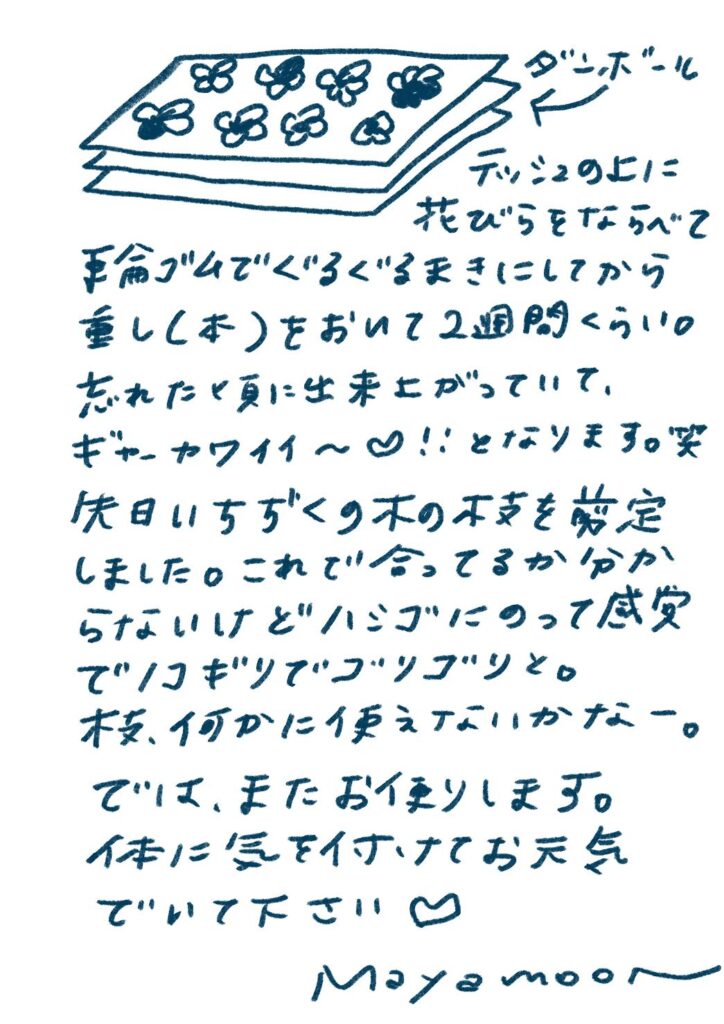 ダンボール
テッシュの上に
花びらをならべて
輪ゴムでぐるぐるまきにしてから
重し(本)をおいて2週間くらい。
忘れた頃に出来上がっていて、
ギャーカワイイ〜♡!!となります。笑
先日いちぢくの木の枝を剪定
しました。これで合ってるか分か
らないけどハシゴにのって感覚
でノコギリでゴリゴリと。
枝、何かに使えないかなー。
では、またお便りします。
体に気を付けてお元気
でいて下さい♡
Mayamoon